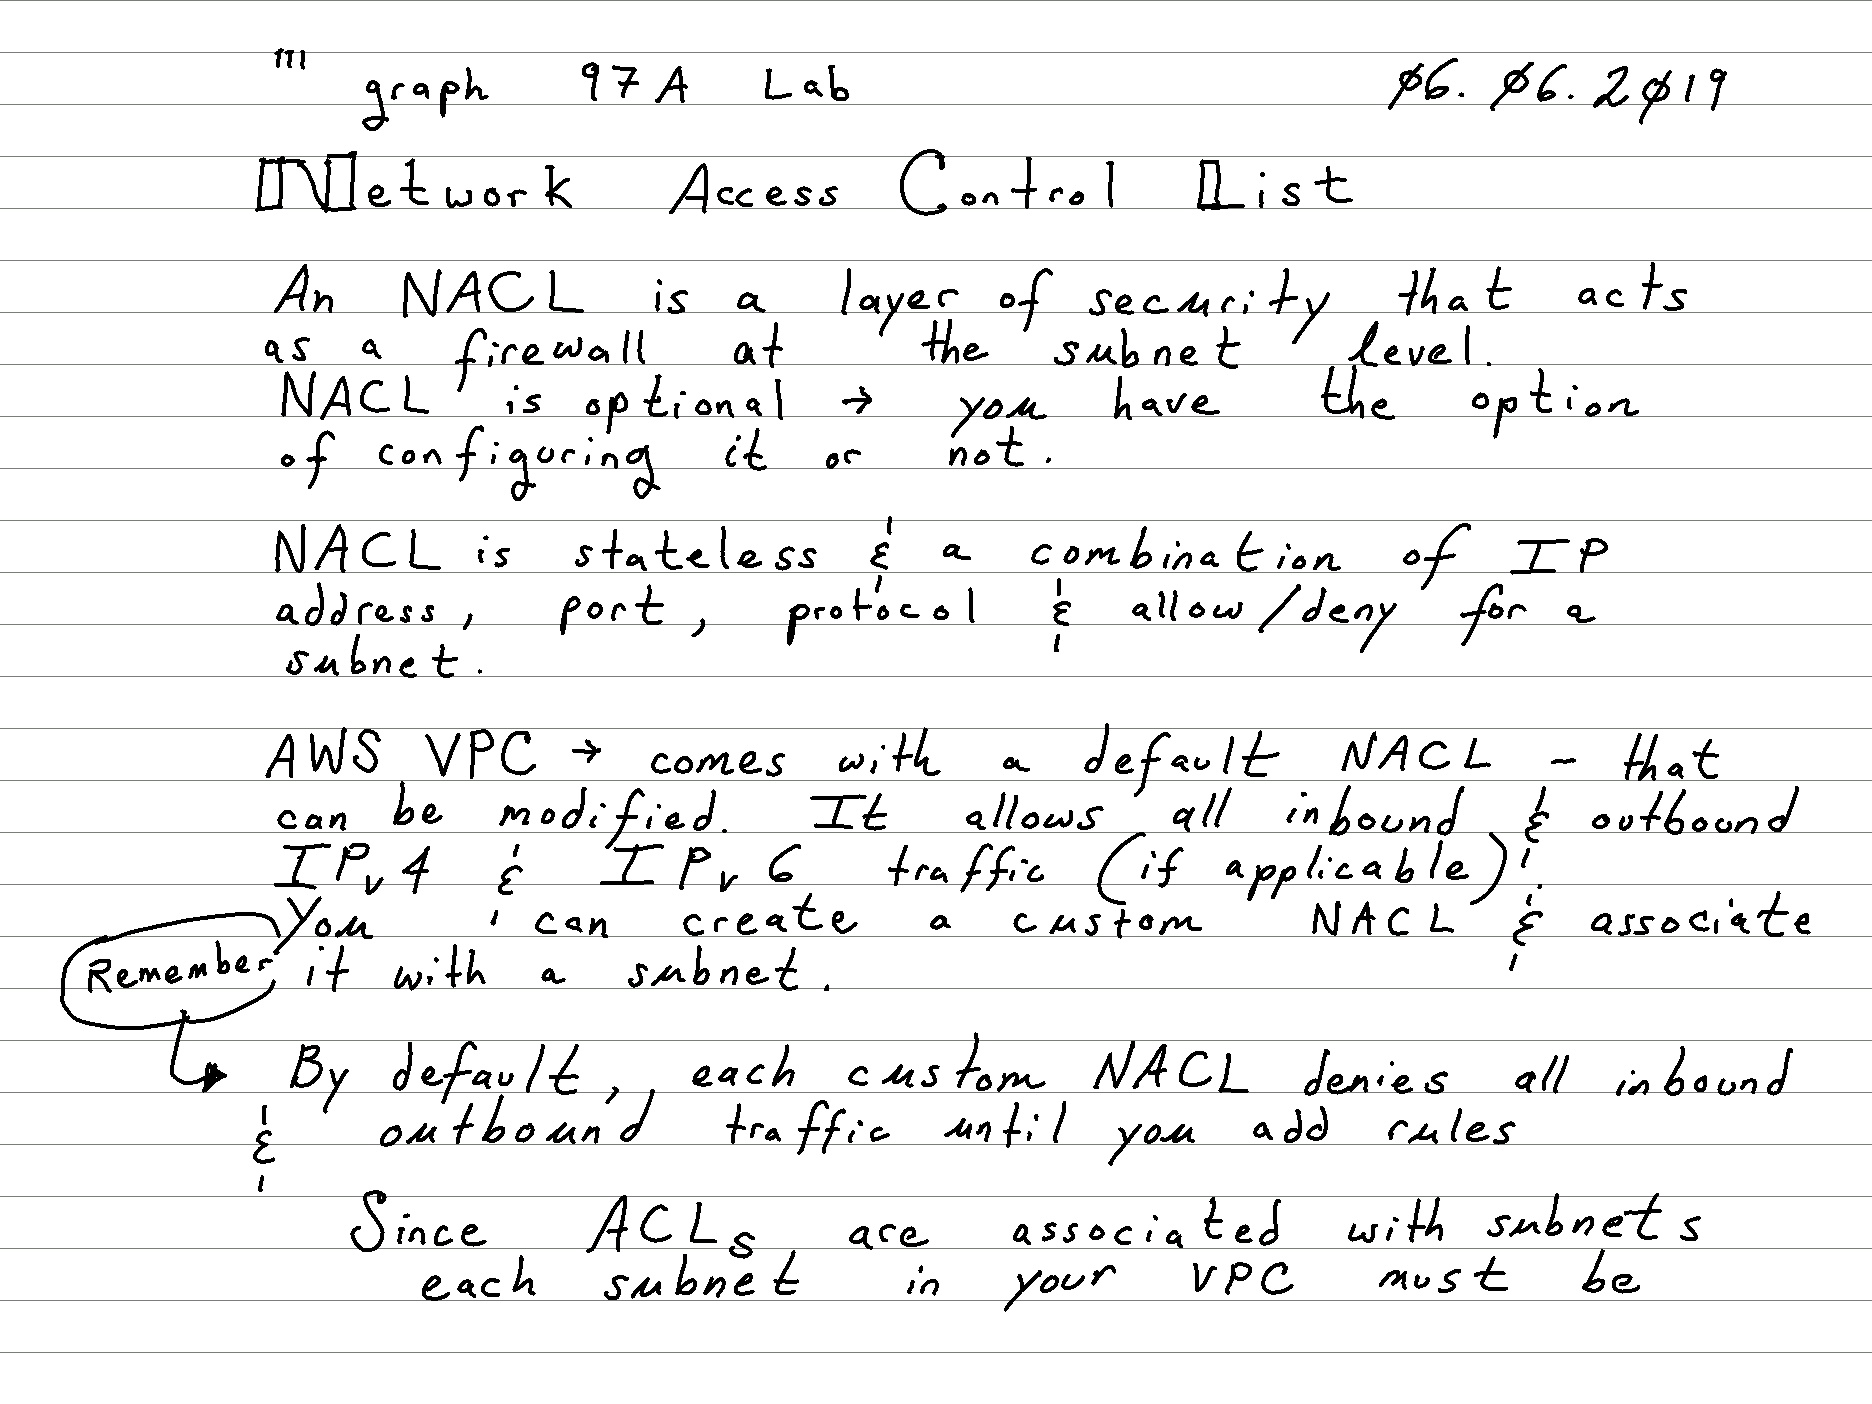 graph 97A Lab 06.06.2019
Network Access Control List
An NACL is a layer of security that acts
as a firewall at the subnet level.
NACL is optional → you have the option
of configuring it or not.
NACL is stateless & a combination of IP
address, port, protocol & allow/deny for a
subnet.
AWS VPC → comes with a default NACL - that
can be modified. It allows all inbound & outbound
IPv4 & IPv6 traffic (if applicable).
You can create a custom NACL & associate
Remember it with a subnet.
By default, each custom NACL denies all inbound
& outbound traffic until you add rules
Since ACLs are associated with subnets,
each subnet in your VPC must be